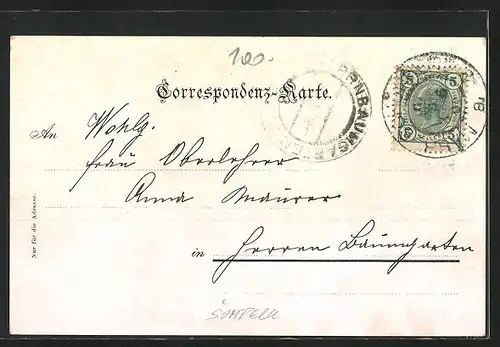 100.
Correspondenz-Karte.
An Wohlg.
Frau Oberlehrer
Anna Maurer
in Herren Baumgarten
Nur für die Adresse.
5 5
5 5
ŠUMPERK